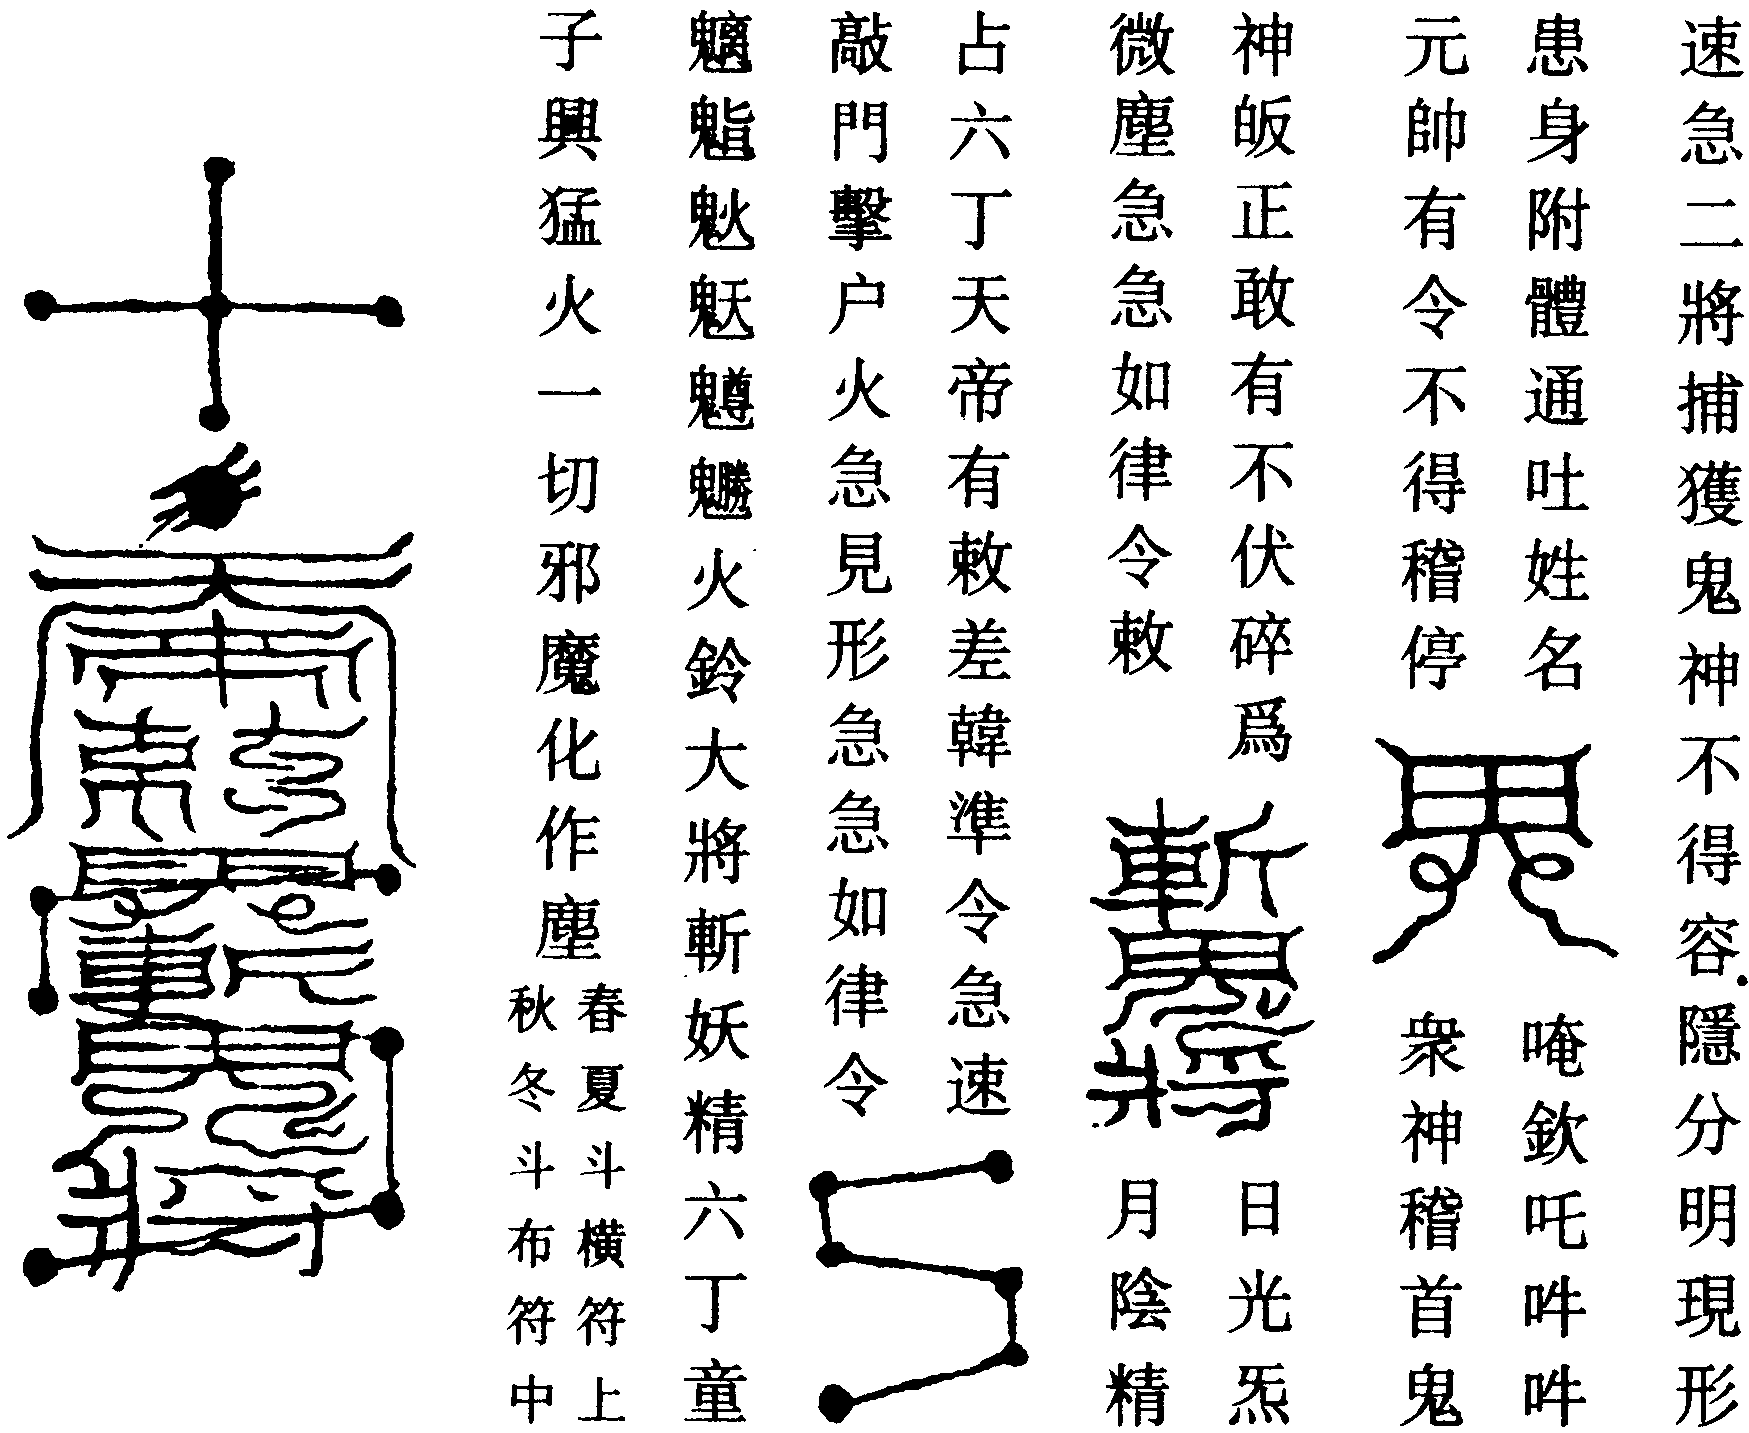 速急二將捕獲鬼神不得容隱分明現形
患身附體通吐姓名
唵欽吒吽吽
元帥有令不得稽停
衆神稽首鬼
神皈正敢有不伏碎爲
微塵急急如律令敕
日光炁
月陰精
占六丁天帝有敕差韓準令急速
敲門擊户火急見形急急如律令
火鈴大將斬妖精六丁童
子興猛火一切邪魔化作塵
春夏斗橫符上
秋冬斗布符中